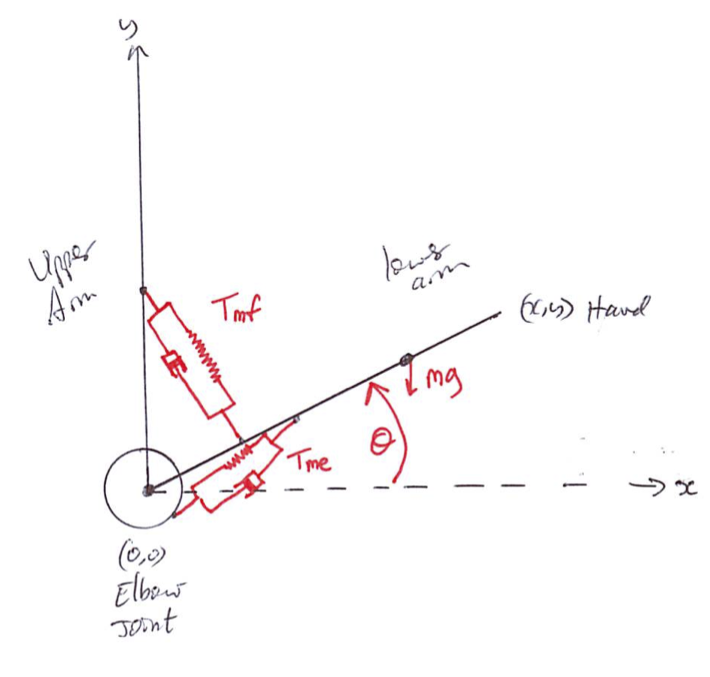 y
Upper
Arm
lower
arm
Tmf
(x,y) Hand
mg
θ
Tme
x
(0,0)
Elbow
Joint